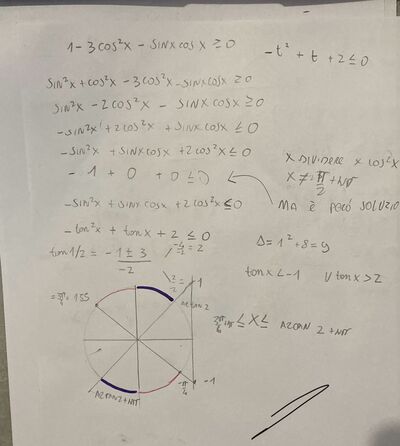 1 - 3cos²x - sinx cos x ≥ 0
-t² + t + 2 ≤ 0
sin²x + cos²x - 3cos²x - sinxcosx ≥ 0
sin²x - 2cos²x - sinxcosx ≥ 0
-sin²x + 2cos²x + sinxcosx ≤ 0
-sin²x + sinxcosx + 2cos²x ≤ 0
- 1 + 0 + 0 ≤ 0
X DIVIDERE X COS²X
X ≠ π/2 + kπ
MA È PERÒ SOLUZIO
-sin²x + sinx cosx + 2cos²x ≤ 0
-tan²x + tanx + 2 ≤ 0
Δ = 1² + 8 = 9
tan 1/2 = (-1 ± 3)/-2
-4/-2 = 2
2/-2 = -1
tanx < -1 ∪ tanx > 2
= 3π/4 = 135
1
arctan 2
3π/4 + kπ ≤ X ≤ arctan 2 + kπ
-π/4
-1
arctan 2 + kπ